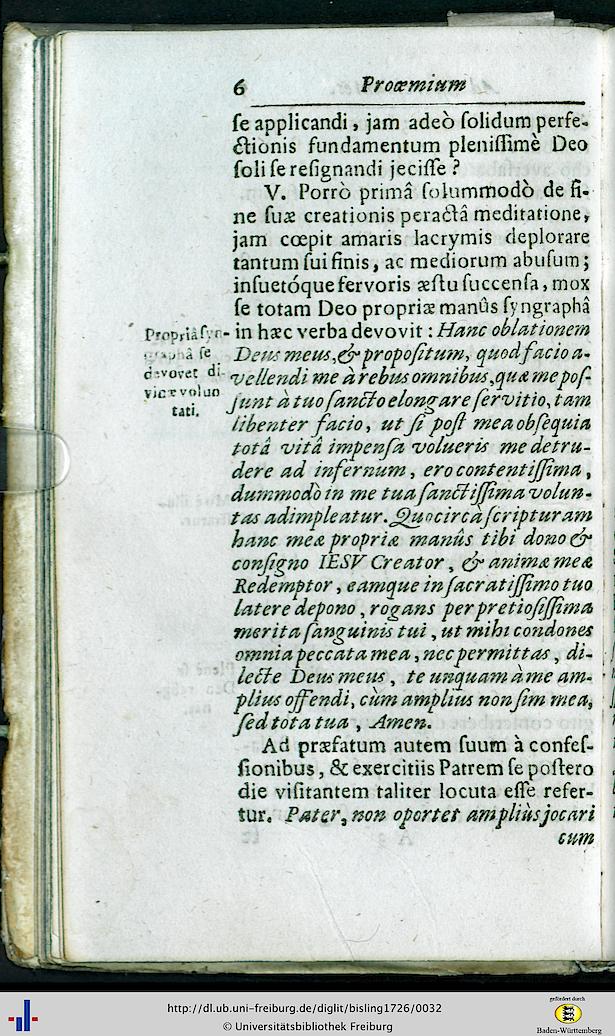 6 Proœmium
ſe applicandi, jam adeò ſolidum perfe-
ctionis fundamentum pleniſſimè Deo
ſoli ſe reſignandi jeciſſe?
V. Porrò primâ ſolummodò de fi-
ne ſuæ creationis peractâ meditatione,
jam cœpit amaris lacrymis deplorare
tantum ſui finis, ac mediorum abuſum;
inſuetóque fervoris æſtu ſuccenſa, mox
ſe totam Deo propriæ manûs ſyngraphâ
in hæc verba devovit: Hanc oblationem
Deus meus, & propoſitum, quod facio a-
vellendi me à rebus omnibus, quæ me poſ-
ſunt à tuo ſancto elongare ſervitio, tam
libenter facio, ut ſi poſt mea obſequia
totâ vitâ impenſa volueris me detru-
dere ad infernum, ero contentiſſima,
dummodò in me tua ſanctiſſima volun-
tas adimpleatur. Quocircà ſcripturam
hanc meæ propriæ manûs tibi dono &
conſigno IESV Creator, & animæ meæ
Redemptor, eamque in ſacratiſſimo tuo
latere depono, rogans per pretioſiſſima
merita ſanguinis tui, ut mihi condones
omnia peccata mea, nec permittas, di-
lecte Deus meus, te unquam à me am-
plius offendi, cùm amplius non ſim mea,
ſed tota tua, Amen.
Ad præfatum autem ſuum à confeſ-
ſionibus, & exercitiis Patrem ſe poſtero
die viſitantem taliter locuta eſſe refer-
tur. Pater, non oportet ampliùs jocari
cum
Propriâ ſyn-
graphâ ſe
devovet di-
vinæ volun
tati.
http://dl.ub.uni-freiburg.de/diglit/bisling1726/0032
© Universitätsbibliothek Freiburg
gefördert durch
Baden-Württemberg